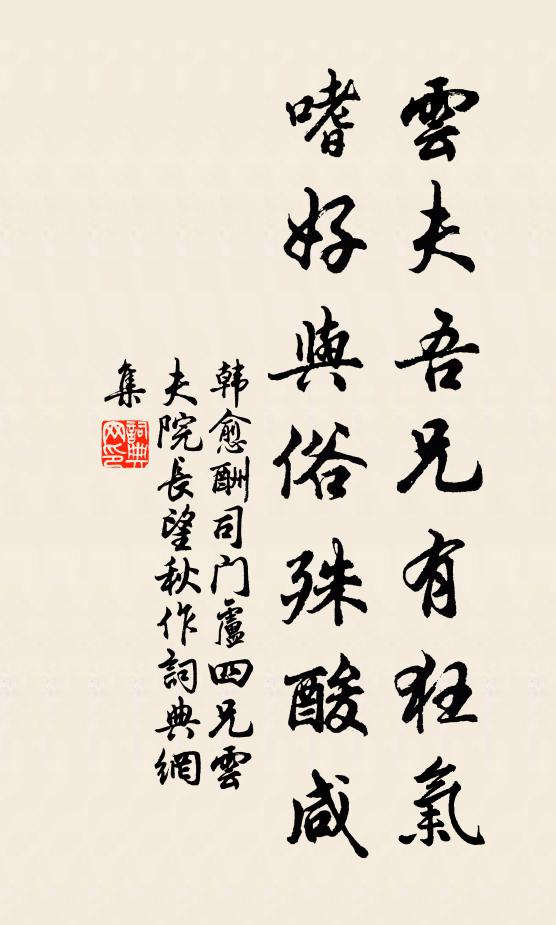 雲夫吾兄有狂氣
嗜好與俗殊酸咸
韩愈酬司门盧四兄雲
夫院長望秋作詞典網
集
詞典
网印